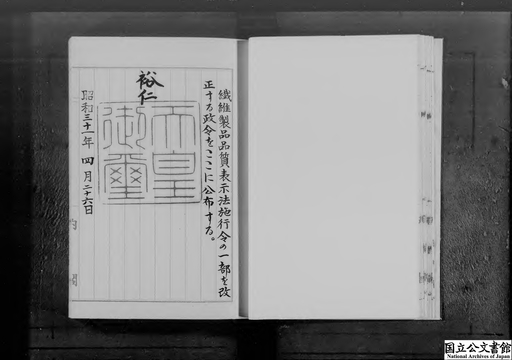 繊維製品品質表示法施行令の一部を改
正する政令をここに公布する。
裕仁
天皇
御璽
昭和三十一年四月二十六日
内閣
国立公文書館
National Archives of Japan